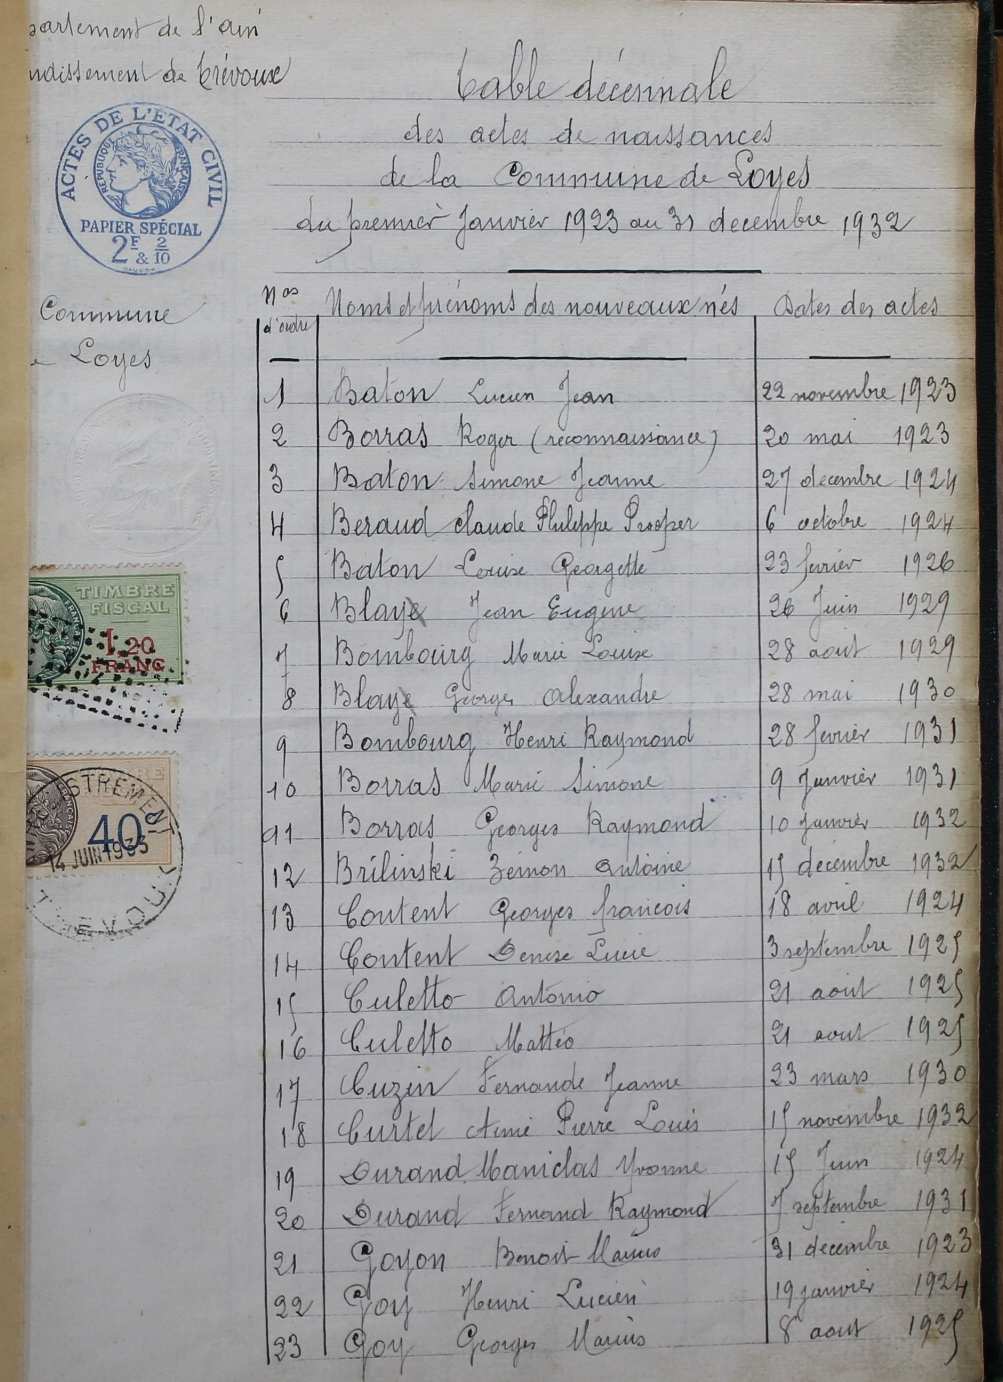 partement de l'ain
ndissement de Trévoux
ACTES DE L'ÉTAT CIVIL
RÉPUBLIQUE FRANÇAISE
PAPIER SPÉCIAL
2F & 2/10
Commune
Loyes
TIMBRE
FISCAL
1.20
FRANC
40c
14 JUIN 1933
Table décennale
des actes de naissances
de la Commune de Loyes
du premièr Janvièr 1923 au 31 decembre 1932
Nos d'ordre Noms et prénoms des nouveaux nés Dates des actes
1 Baton Lucien Jean 22 novembre 1923
2 Borras Roger (reconnaissance) 20 mai 1923
3 Baton Simone Jeanne 27 décembre 1924
4 Beraud claude Philippe Prosper 6 octobre 1924
5 Baton Louise Georgette 23 fevrier 1926
6 Blaye Jean Eugène 26 Juin 1929
7 Bombourg Marie Louise 28 aout 1929
8 Blaye Georges Alexandre 28 mai 1930
9 Bombourg Henri Raymond 28 fevrier 1931
10 Borras Marie Simone 9 Janvièr 1931
11 Borras Georges Raymond 10 Janvièr 1932
12 Brilinski Zémon Antoine 15 décembre 1932
13 Content Georges francois 18 avril 1924
14 Content Denise Lucie 3 septembre 1925
15 Culetto Antonio 21 aout 1925
16 Culetto Mattéo 21 aout 1925
17 Cuzin Fernande Jeanne 23 mars 1930
18 Curtet Aimé Pierre Louis 15 novembre 1932
19 Durand Maniclas Yvonne 15 Juin 1924
20 Durand Fernand Raymond 7 septembre 1931
21 Goyon Benoit Marius 31 décembre 1923
22 Goy Henri Lucien 19 janvièr 1924
23 Goy Georges Marius 8 aout 1925